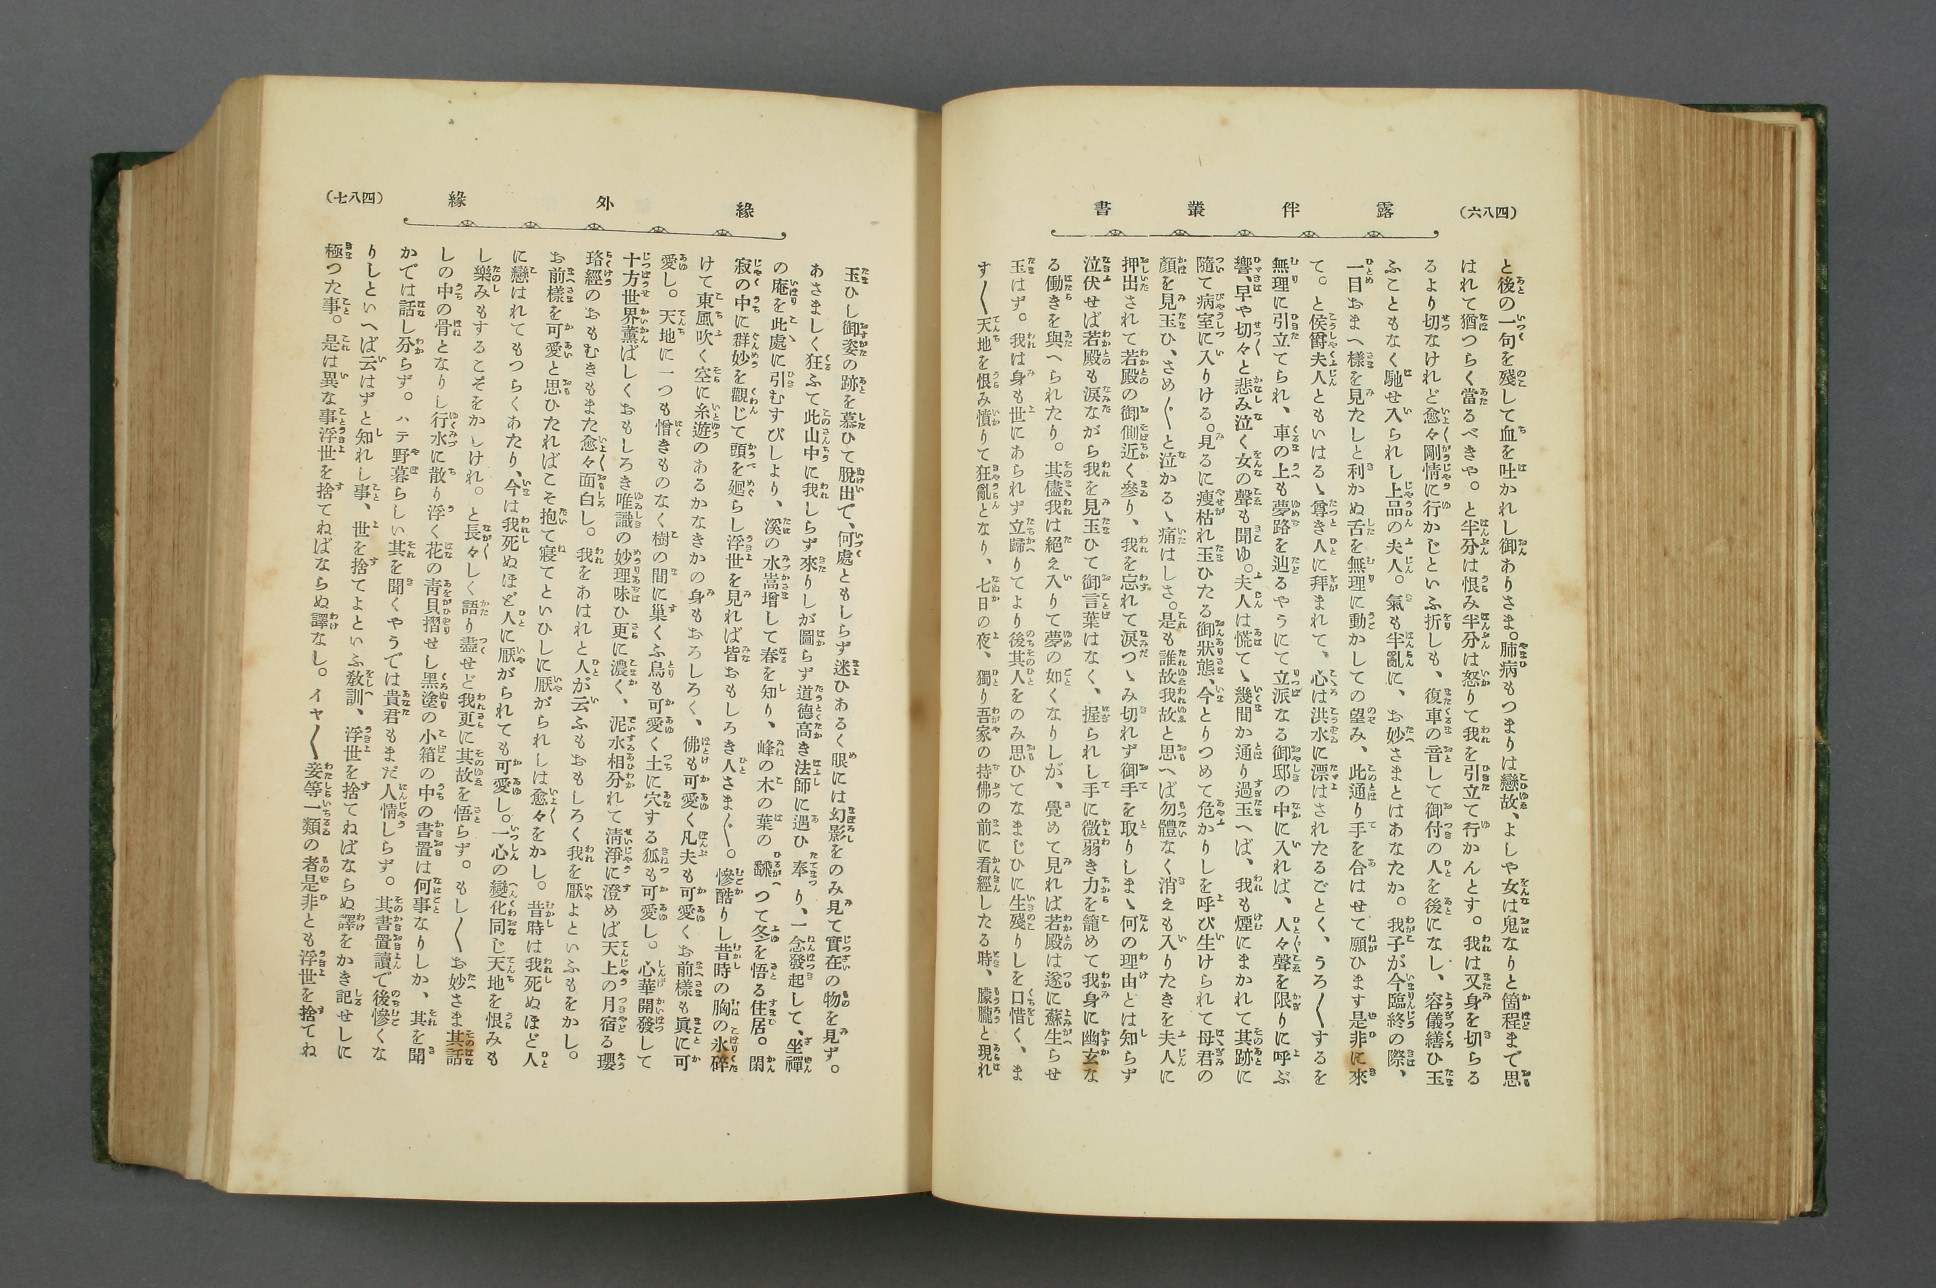 (四八六)
露伴叢書
と後の一句を殘して血を吐かれし御ありさま。肺病もつまりは戀故、よしや女は鬼なりと箇程まで思
はれて猶つらく當るべきや。と半分は恨み半分は怒りて我を引立て行かんとす。我は又身を切らる
るより切なけれど愈々剛情に行かじといふ折しも、復車の音して御付の人を後になし、容儀繕ひ玉
ふこともなく馳せ入られし上品の夫人。氣も半亂に、お妙さまとはあなたか。我子が今臨終の際、
一目おまへ樣を見たしと利かぬ舌を無理に動かしての望み、此通り手を合はせて願ひます是非に來
て。と侯爵夫人ともいはるゝ尊き人に拜まれて、心は洪水に漂はされたるごとく、うろ〱するを
無理に引立てられ、車の上も夢路を辿るやうにて立派なる御邸の中に入れば、人々聲を限りに呼ぶ
響、早や切々と悲み泣く女の聲も聞ゆ。夫人は慌てゝ幾間か通り過玉へば、我も煙にまかれて其跡に
隨て病室に入りける。見るに瘦枯れ玉ひたる御狀態、今とりつめて危かりしを呼び生けられて母君の
顏を見玉ひ、さめ〲と泣かるゝ痛はしさ。是も誰故我故と思へば勿體なく消えも入りたきを夫人に
押出されて若殿の御側近く參り、我を忘れて淚つゝみ切れず御手を取りしまゝ何の理由とは知らず
泣伏せば若殿も淚ながら我を見玉ひて御言葉はなく、握られし手に微弱き力を籠めて我身に幽玄な
る働きを與へられたり。其儘我は絕え入りて夢の如くなりしが、覺めて見れば若殿は遂に蘇生らせ
玉はず。我は身も世にあられず立歸りてより後其人をのみ思ひてなまじひに生殘りしを口惜く、ま
す〱天地を恨み憤りて狂亂となり、七日の夜、獨り吾家の持佛の前に看經したる時、朦朧と現れ
(四八七)
緣外緣
玉ひし御姿の跡を慕ひて脫出て、何處ともしらず迷ひあるく眼には幻影をのみ見て實在の物を見ず。
あさましく狂ふて此山中に我しらず來りしが圖らず道德高き法師に遇ひ奉り、一念發起して、坐禪
の庵を此處に引むすびしより、溪の水嵩增して春を知り、峰の木の葉の飜つて冬を悟る住居。閑
寂の中に群妙を觀じて頭を廻らし浮世を見れば皆おもしろき人さま〲。慘酷りし昔時の胸の氷碎
けて東風吹く空に糸遊のあるかなきかの身もおろしろく、佛も可愛く凡夫も可愛くお前樣も眞に可
愛し。天地に一つも憎きものなく樹の間に巢くふ鳥も可愛く土に穴する狐も可愛し。心華開發して
十方世界薰ばしくおもしろき唯識の妙理味ひ更に濃く、泥水相分れて淸淨に澄めば天上の月宿る瓔
珞經のおもむきもまた愈々面白し。我をあはれと人が云ふもおもしろく我を厭よといふもをかし。
お前樣を可愛と思ひたればこそ抱て寢てといひしに厭がられしは愈々をかし。昔時は我死ぬほど人
に戀はれてもつらくあたり、今は我死ぬほど人に厭がられても可愛し。一心の變化同じ天地を恨みも
し樂みもするこそをかしけれ。と長々しく語り盡せど我更に其故を悟らず。もし〱お妙さま其話
しの中の骨となりし行水に散り浮く花の靑貝摺せし黑塗の小箱の中の書置は何事なりしか、其を聞
かでは話し分らず。ハテ野暮らしい其を聞くやうでは貴君もまだ人情しらず。其書置讀で後慘くな
りしといへば云はずと知れし事、世を捨てよといふ敎訓、浮世を捨てねばならぬ譯をかき記せしに
極つた事。是は異な事浮世を捨てねばならぬ譯なし。イヤ〱妾等一類の者是非とも浮世を捨てね